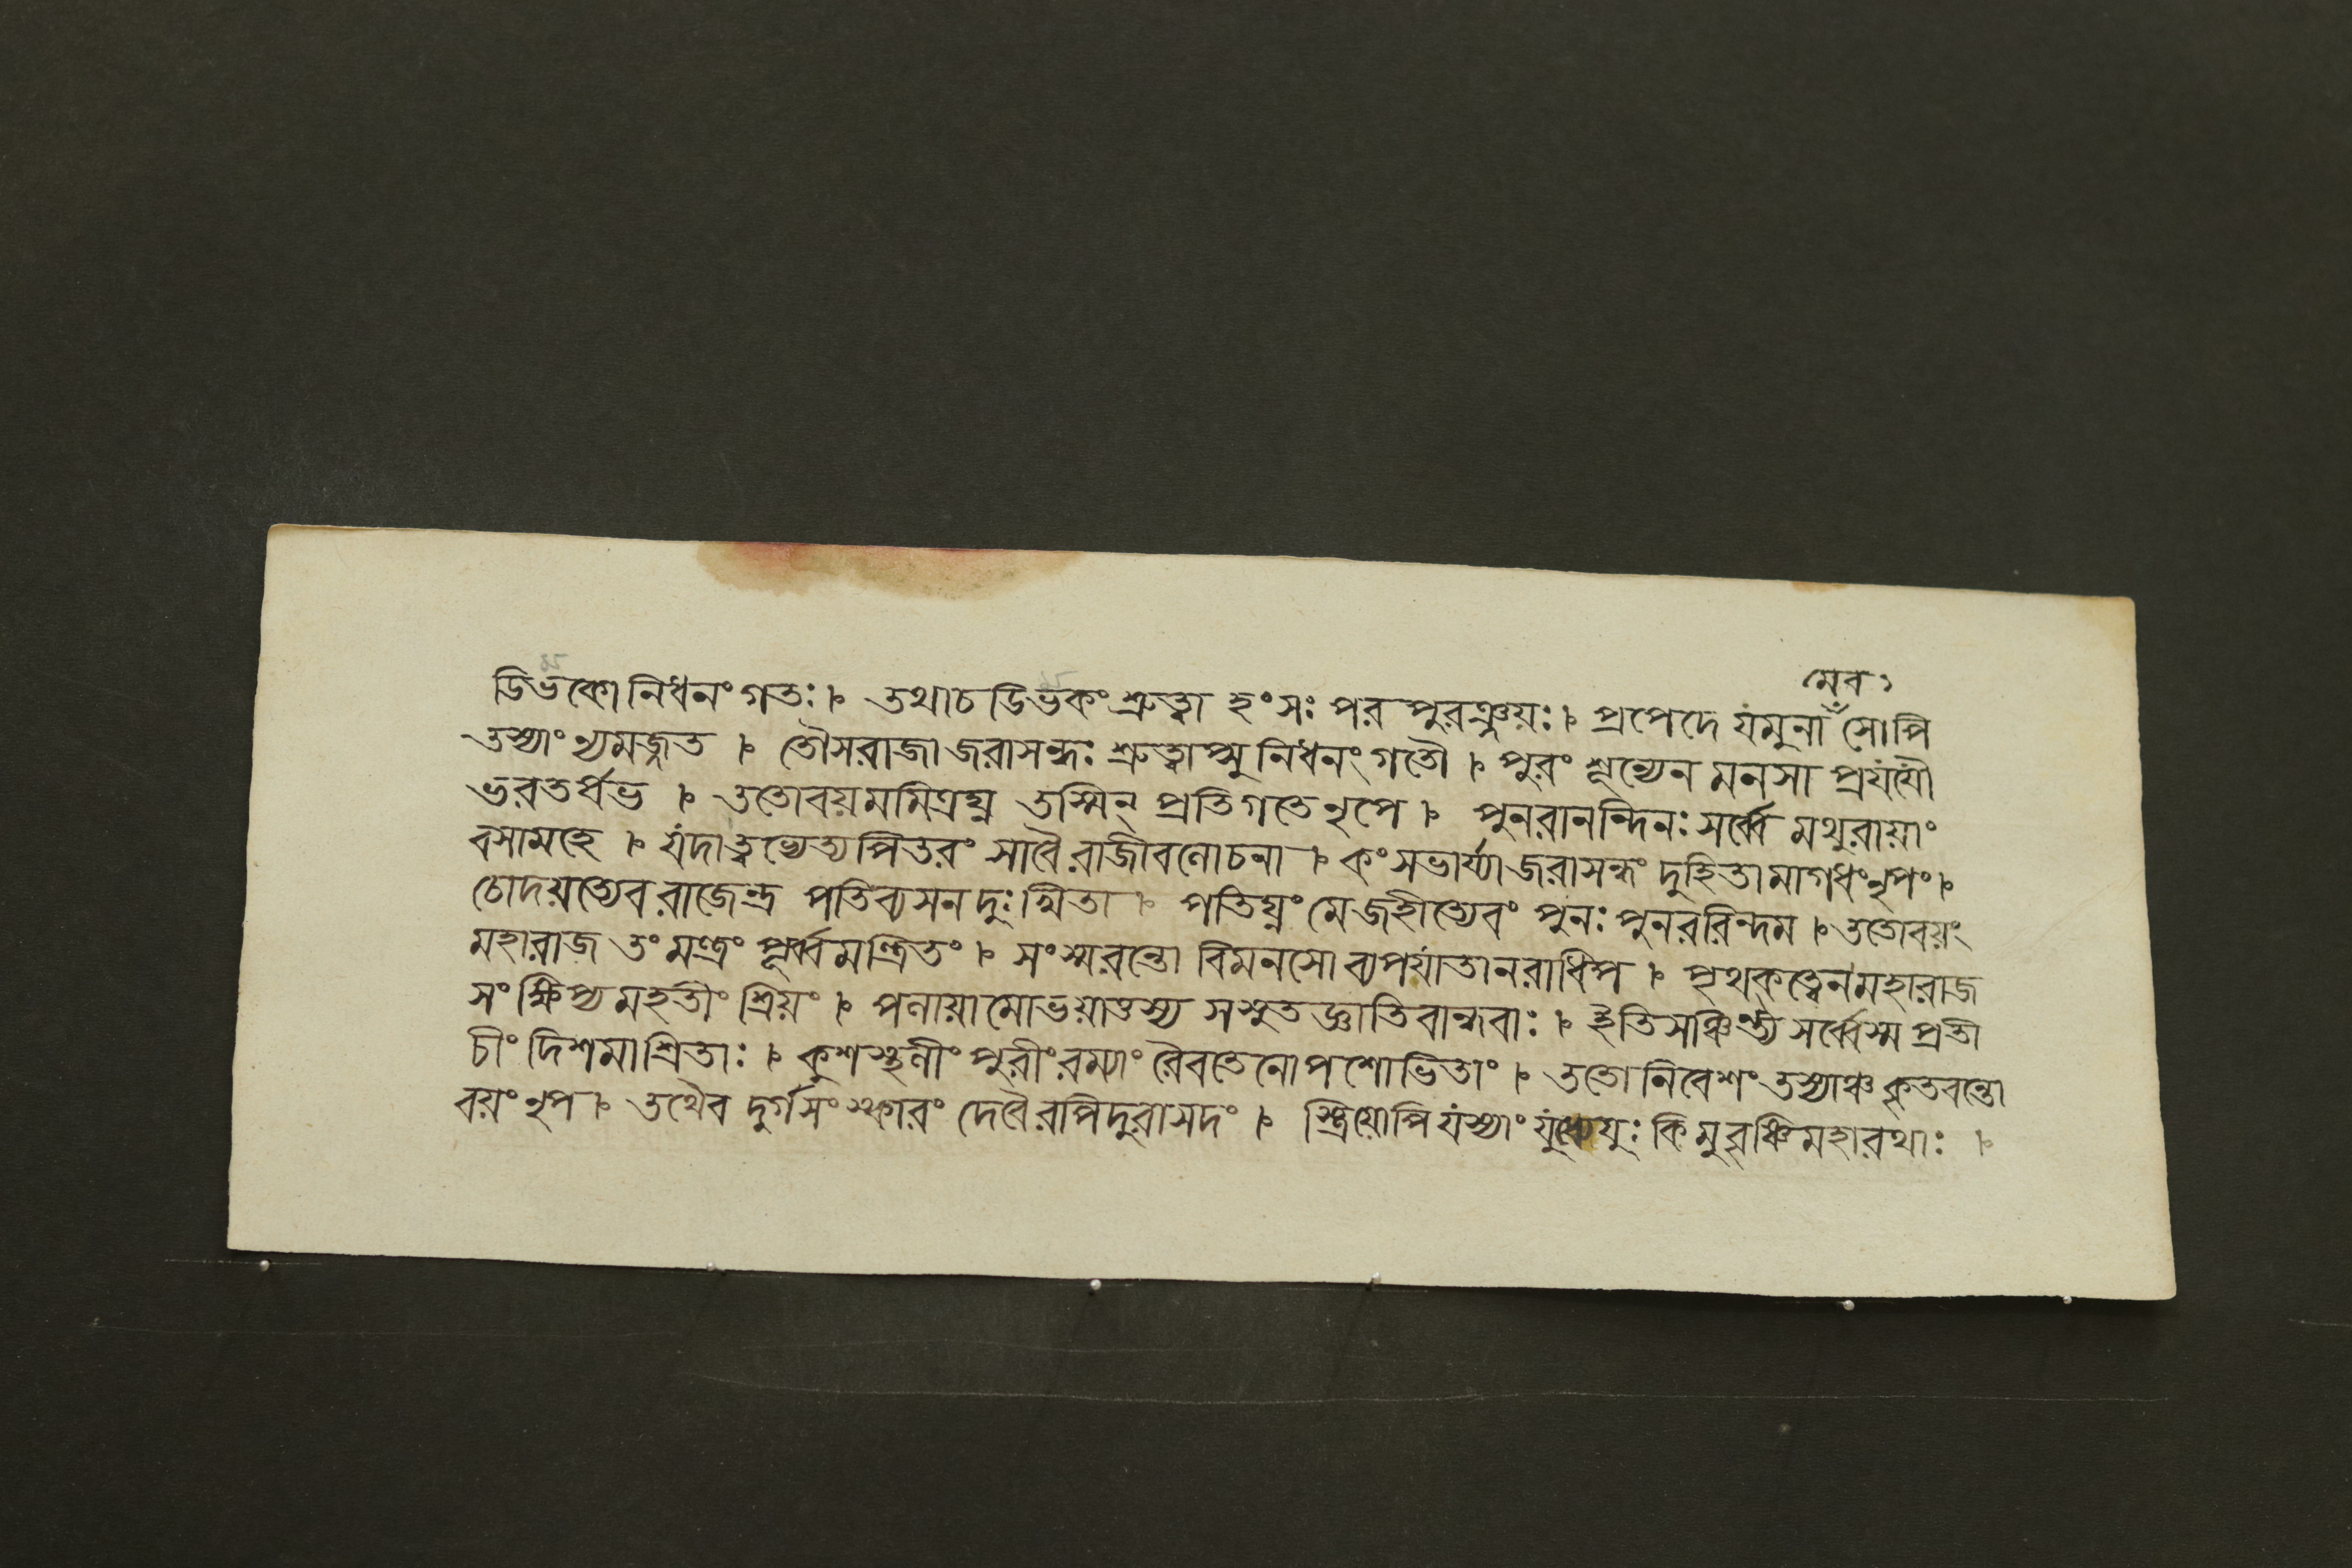 মেব
ডিভকো নিধনং গতঃ । তথাচ ডিভকং শ্রুত্বা হংসঃ পর পুরঞ্জয়ঃ । প্রপেদে যমুনাঁ সোপি
তস্যাং ন্যমজ্জত । তৌসরাজা জরাসন্ধঃ শ্রুত্বাপ্সু নিধনং গতৌ । পুরং শূন্যেন মনসা প্রযযৌ
ভরতর্ষভ । ততোবয়মমিত্রঘ্ন তস্মিন্ প্রতিগতে নৃপে । পুনরানন্দিনঃ সর্ব্বে মথুরায়াং
বসামহে । যদাত্বভ্যেত্য পিতরং সাবৈ রাজীবলোচনা । কংসভার্য্যা জরাসন্ধং দুহিতা মাগধং নৃপং ।
চোদয়ত্যেব রাজেন্দ্র পতিব্যসন দুঃখিতা । পতিঘ্নং মে জহীত্যেবং পুনঃ পুনররিন্দম । ততোবয়ং
মহারাজ তং মন্ত্রং পূর্ব্বমন্ত্রিতং । সংস্মরন্তো বিমনসো ব্যপযাতা নরাধিপ । পৃথকত্বেন মহারাজ
সংক্ষিপ্য মহতীং শ্রিয়ং । পলায়ামো ভয়াত্তস্য সসুত জ্ঞাতি বান্ধবাঃ । ইতি সঞ্চিন্ত্য সর্ব্বেস্ম প্রতী
চীং দিশমাশ্রিতাঃ । কুশস্থলীং পুরীং রম্যাং রৈবতেনোপশোভিতাং । ততো নিবেশং তস্যাঞ্চ কৃতবন্তো
বয়ং নৃপ । তথৈব দুর্গসংস্কারং দেবৈরপি দুরাসদং । স্ত্রিয়োপি যস্যাং যুধ্যেয়ুঃ কিমু বৃষ্ণি মহারথাঃ ।